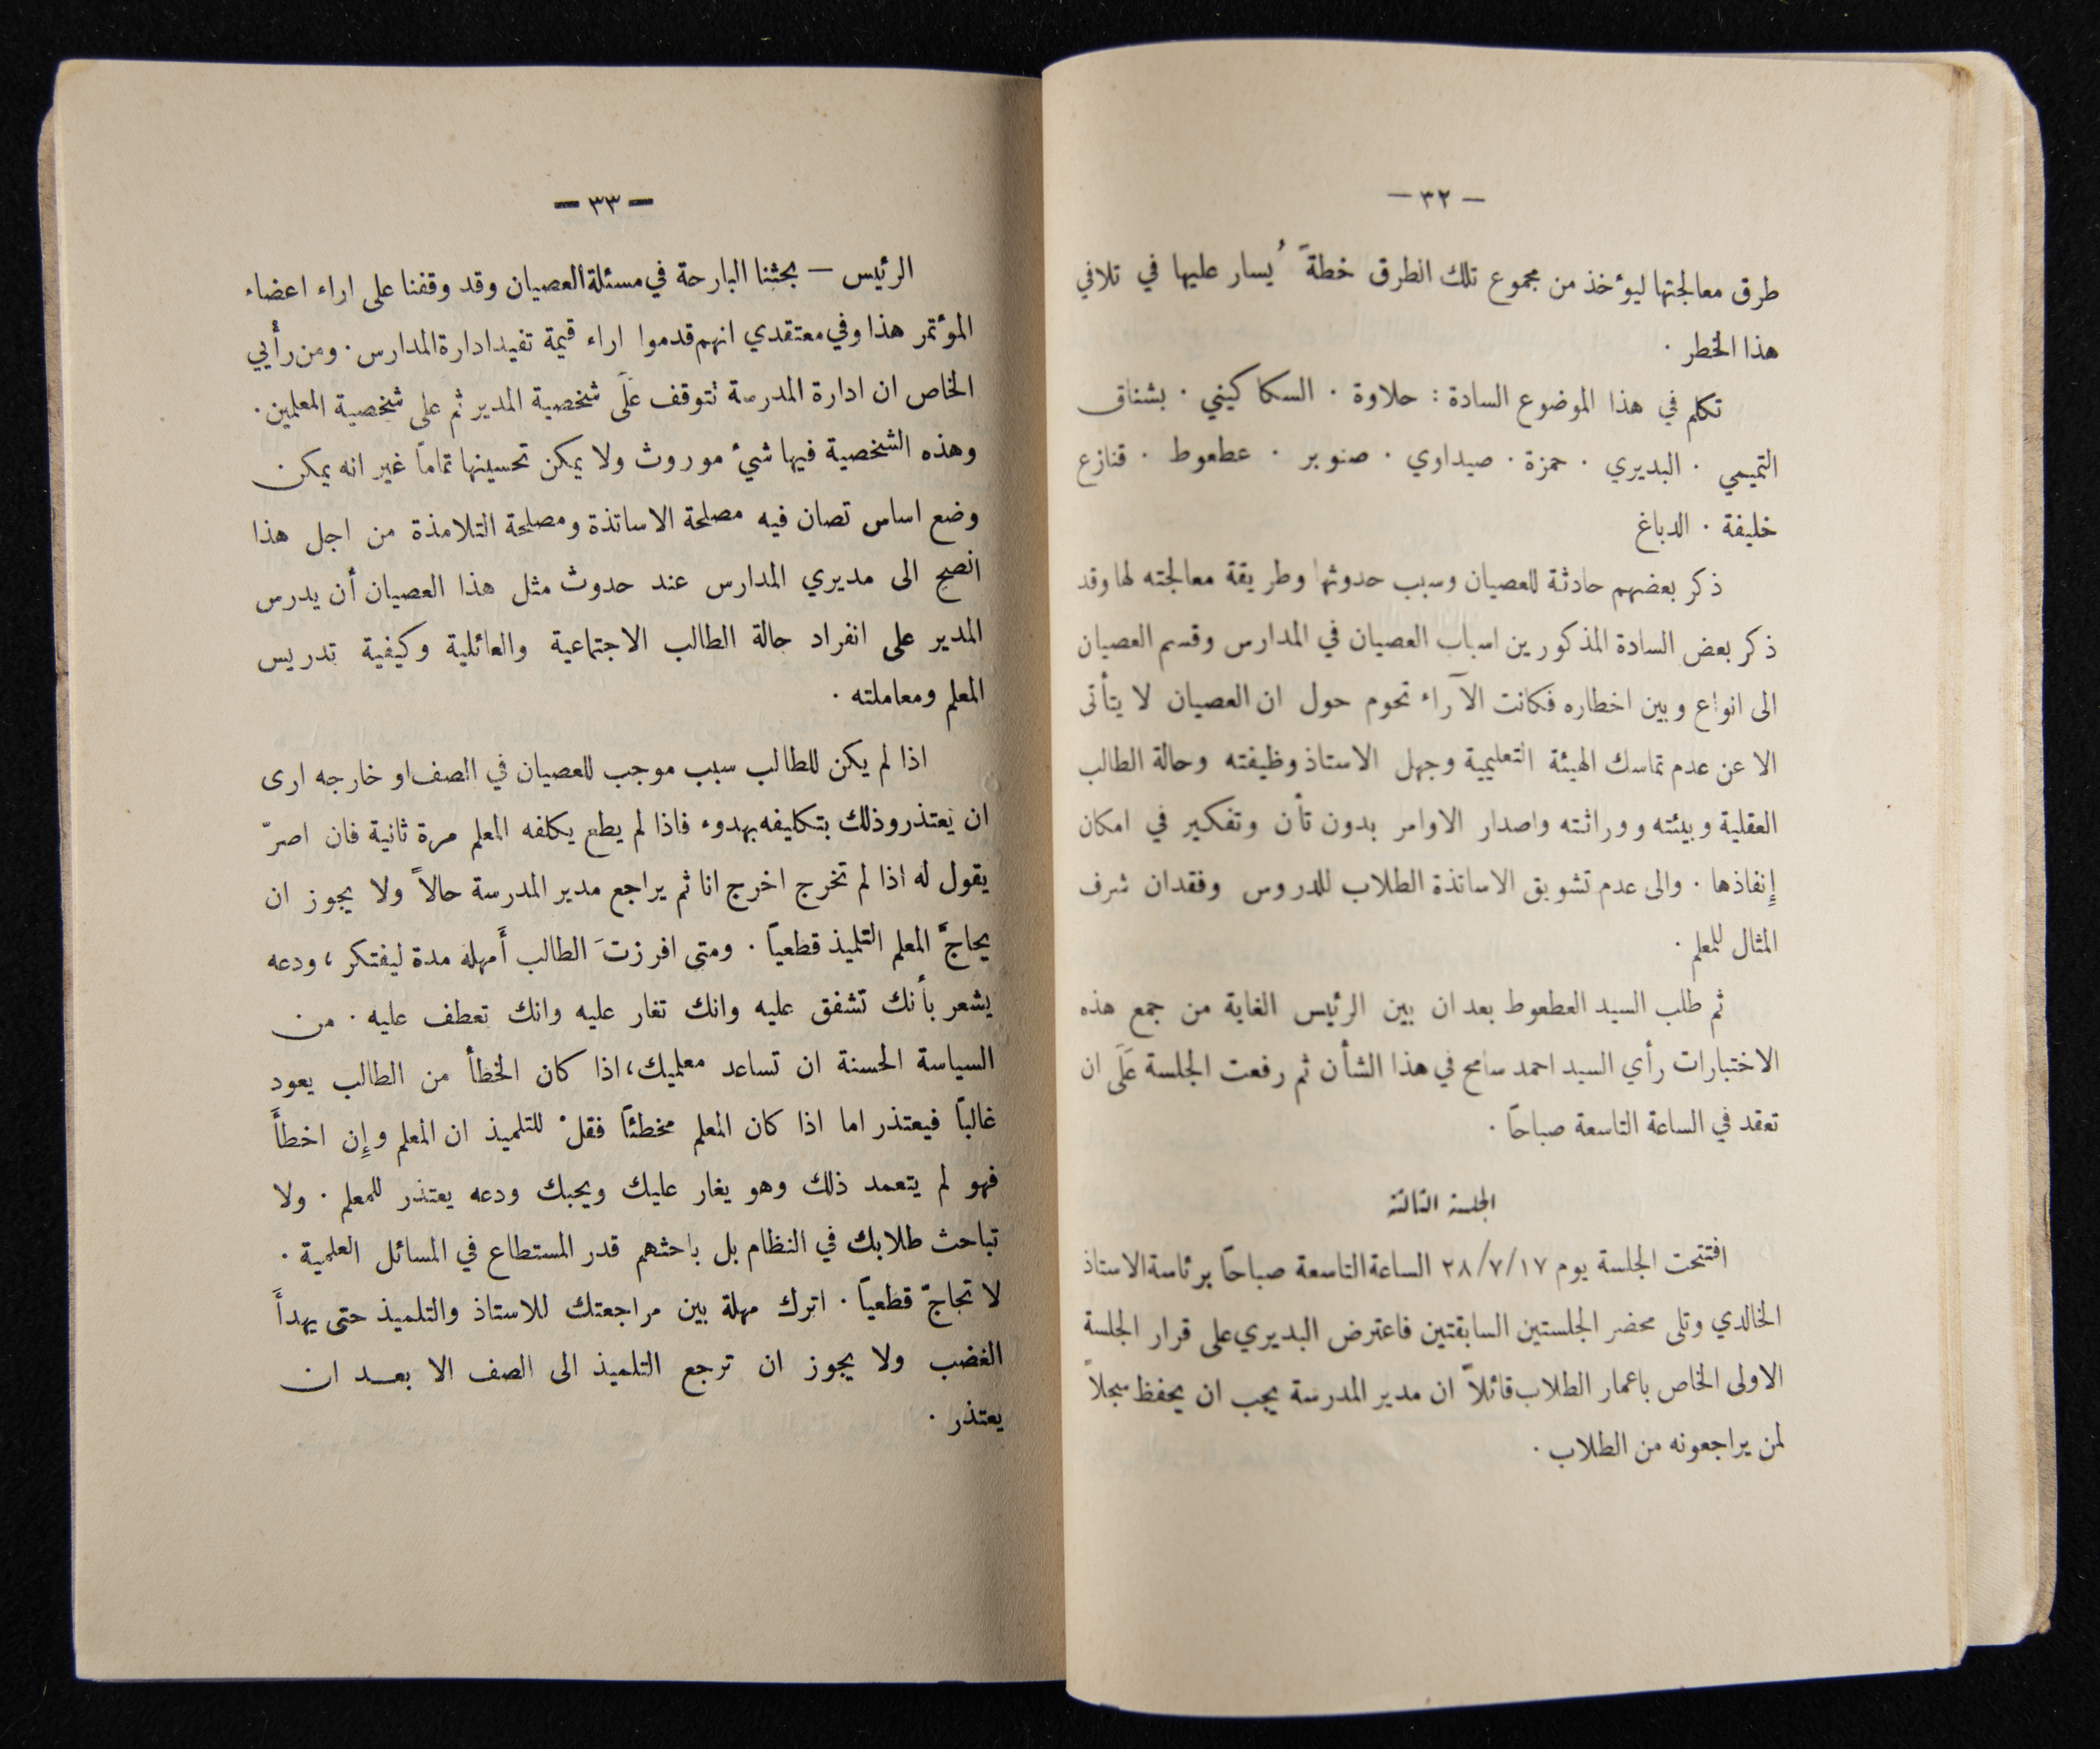 — ٣٢ —
طرق معالجتها ليؤخذ من مجموع تلك الطرق خطةً يُسار عليها في تلافي
هذا الخطر .
تكلم في هذا الموضوع السادة : حلاوة . السكاكيني . بشناق
التميمي . البديري . حمزة . صيداوي . صنوبر . عطعوط . قنازع
خليفة . الدباغ
ذكر بعضهم حادثة للعصيان وسبب حدوثها وطريقة معالجته لها وقد
ذكر بعض السادة المذكورين اسباب العصيان في المدارس وقسم العصيان
الى انواع وبين اخطاره فكانت الآراء تحوم حول ان العصيان لا يتأتى
الا عن عدم تماسك الهيئة التعليمية وجهل الاستاذ وظيفته وحالة الطالب
العقلية وبيئته ووراثته واصدار الاوامر بدون تأن وتفكير في امكان
إنفاذها . والى عدم تشويق الاساتذة الطلاب للدروس وفقدان شرف
المثال للمعلم .
ثم طلب السيد العطعوط بعد ان بين الرئيس الغاية من جمع هذه
الاختبارات رأي السيد احمد سامح في هذا الشأن ثم رفعت الجلسة عَلَى ان
تعقد في الساعة التاسعة صباحاً .
الجلسة الثالثة
افتتحت الجلسة يوم ٢٨/٧/١٧ الساعة التاسعة صباحاً برئاسة الاستاذ
الخالدي وتلى محضر الجلستين السابقتين فاعترض البديري على قرار الجلسة
الاولى الخاص باعمار الطلاب قائلاً ان مدير المدرسة يجب ان يحفظ سجلاً
لمن يراجعونه من الطلاب .
— ٣٣ —
الرئيس — بحثنا البارحة في مسئلة العصيان وقد وقفنا على اراء اعضاء
المؤتمر هذا وفي معتقدي انهم قدموا اراء قيمة تفيد ادارة المدارس . ومن رأيي
الخاص ان ادارة المدرسة تتوقف عَلَى شخصية المدير ثم على شخصية المعلمين .
وهذه الشخصية فيها شيء موروث ولا يمكن تحسينها تماماً غير انه يمكن
وضع اساس تصان فيه مصلحة الاساتذة ومصلحة التلامذة من اجل هذا
انصح الى مديري المدارس عند حدوث مثل هذا العصيان أن يدرس
المدير على انفراد حالة الطالب الاجتماعية والعائلية وكيفية تدريس
المعلم ومعاملته .
اذا لم يكن للطالب سبب موجب للعصيان في الصف او خارجه ارى
ان يعتذر وذلك بتكليفه بهدوء فاذا لم يطع يكلفه المعلم مرة ثانية فان اصرّ
يقول له اذا لم تخرج اخرج انا ثم يراجع مدير المدرسة حالاً ولا يجوز ان
يحاجَّ المعلم التلميذ قطعياً . ومتى افرزتَ الطالب أَمهله مدة ليفتكر ، ودعه
يشعر بأنك تشفق عليه وانك تغار عليه وانك تعطف عليه . من
السياسة الحسنة ان تساعد معلميك ، اذا كان الخطأ من الطالب يعود
غالباً فيعتذر اما اذا كان المعلم مخطئاً فقلْ للتلميذ ان المعلم وإِن اخطأَ
فهو لم يتعمد ذلك وهو يغار عليك ويحبك ودعه يعتذر للمعلم . ولا
تباحث طلابك في النظام بل باحثهم قدر المستطاع في المسائل العلمية .
لا تحاجّ قطعياً . اترك مهلة بين مراجعتك للاستاذ والتلميذ حتى يهدأَ
الغضب ولا يجوز ان ترجع التلميذ الى الصف الا بعد ان
يعتذر .